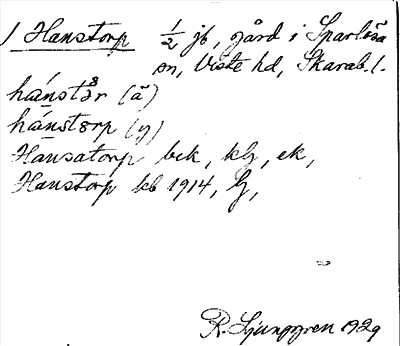 1 Hanstorp 1/2 jb, gård i Sparlösa
sn, Viste hd, Skarab. l.
hánstår (ä)
hánstɵrp (y)
Hansatorp bek, kb, ek,
Hanstorp kb 1914, G,
R. Ljunggren 1929